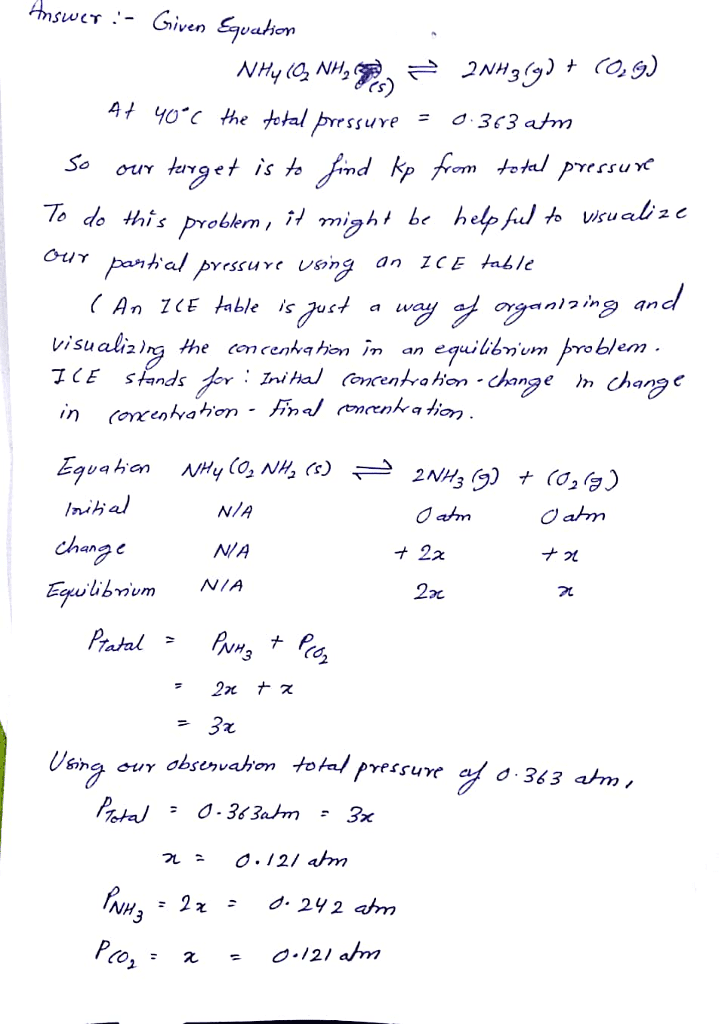 Answer :- Given Equation
NH4 CO2 NH2 (s) ⇌ 2NH3(g) + CO2 g)
At 40°C the total pressure = 0.363 atm
So our target is to find Kp from total pressure
To do this problem, it might be helpful to visualize
our partial pressure using an ICE table
( An ICE table is just a way of organizing and
visualizing the concentration in an equilibrium problem.
ICE stands for : Initial concentration - change in change
in concentration - Final concentration.
Equation NH4 CO2 NH2 (s) ⇌ 2NH3 (g) + CO2(g)
Initial N/A 0 atm 0 atm
change N/A + 2x + x
Equilibrium N/A 2x x
Ptatal = PNH3 + PCO2
= 2x + x
= 3x
Using our observation total pressure of 0.363 atm,
PTotal = 0.363atm = 3x
x = 0.121 atm
PNH3 = 2x = 0.242 atm
PCO2 = x = 0.121 atm